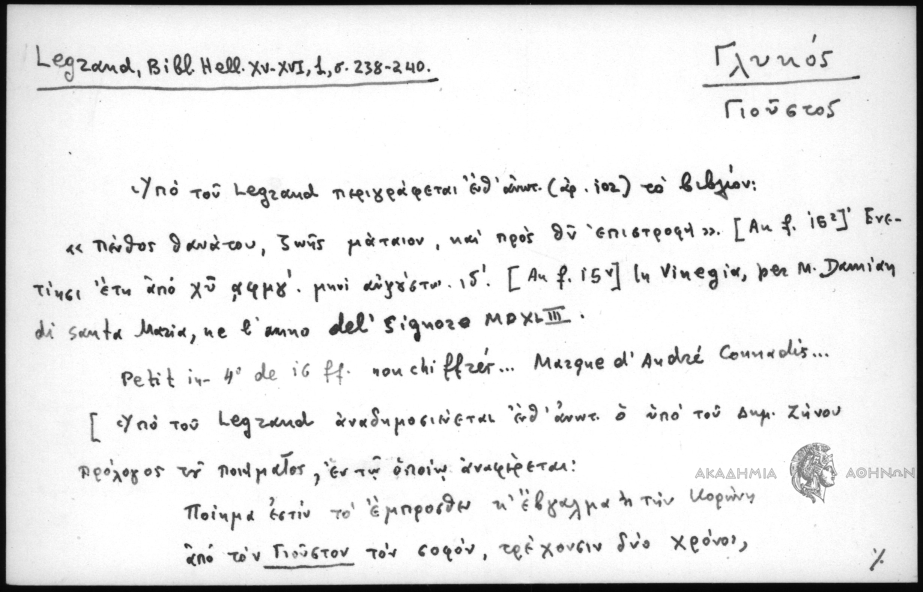 Legrand, Bibl. Hell. XV-XVI, 1, σ. 238-240.
Γλυκός
Γιοῦστος
Ὑπὸ τοῦ Legrand περιγράφεται ἔνθ' ἀνωτ. (ἀρ. 102) τὸ βιβλίον:
« Πένθος θανάτου, ζωῆς μάταιον, καὶ πρὸς θῦ ἐπιστροφή ». [Au f. 15²]' Ενε-
τίησι ἔτη ἀπὸ χῦ ͵αφμγ'. μηνὶ αὐγούστω. ιδ'. [Au f. 15ᵛ] In Vinegia, per M. Damian
di santa Maria, ne l'anno del' Signore MDXLIII.
Petit in-4° de 16 ff. non chiffrés... Marque d'André Counadis...
[Ὑπὸ τοῦ Legrand ἀναδημοσιεύεται ἔνθ' ἀνωτ. ὁ ὑπὸ τοῦ Δημ. Ζήνου
πρόλογος τοῦ ποιήματος, ἐν τῷ ὁποίῳ ἀναφέρεται:
Ποίημα ἐστὶν τὸ ἔμπροσθεν κ' ἔβγαλμα ἐκ τὴν Κορώνη
ἀπὸ τὸν Γιοῦστον τὸν σοφόν, τρέχουσιν δύο χρόνοι,
ΑΚΑΔΗΜΙΑ ΑΘΗΝΩΝ
%